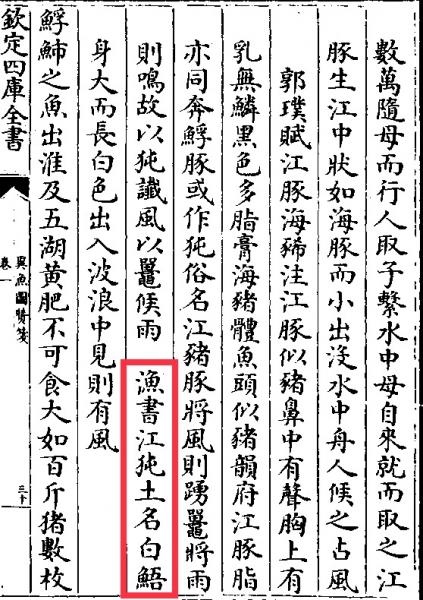 數萬隨母而行人取子繫水中母自來就而取之江
豚生江中狀如海豚而小出沒水中舟人候之占風
郭璞賦江豚海狶注江豚似豬鼻中有聲胸上有
乳無鱗黑色多脂膏海豬體魚頭似豬韻府江豚脂
亦同奔䱐豚或作㹠俗名江豬豚將風則踴鼉將雨
則鳴故以㹠讖風以鼉候雨　漁書江㹠土名白鯃
身大而長白色出入波浪中見則有風
䱐魳之魚出淮及五湖黄肥不可食大如百斤猪數枚
欽定四庫全書
異魚圖贊箋
卷一
三十